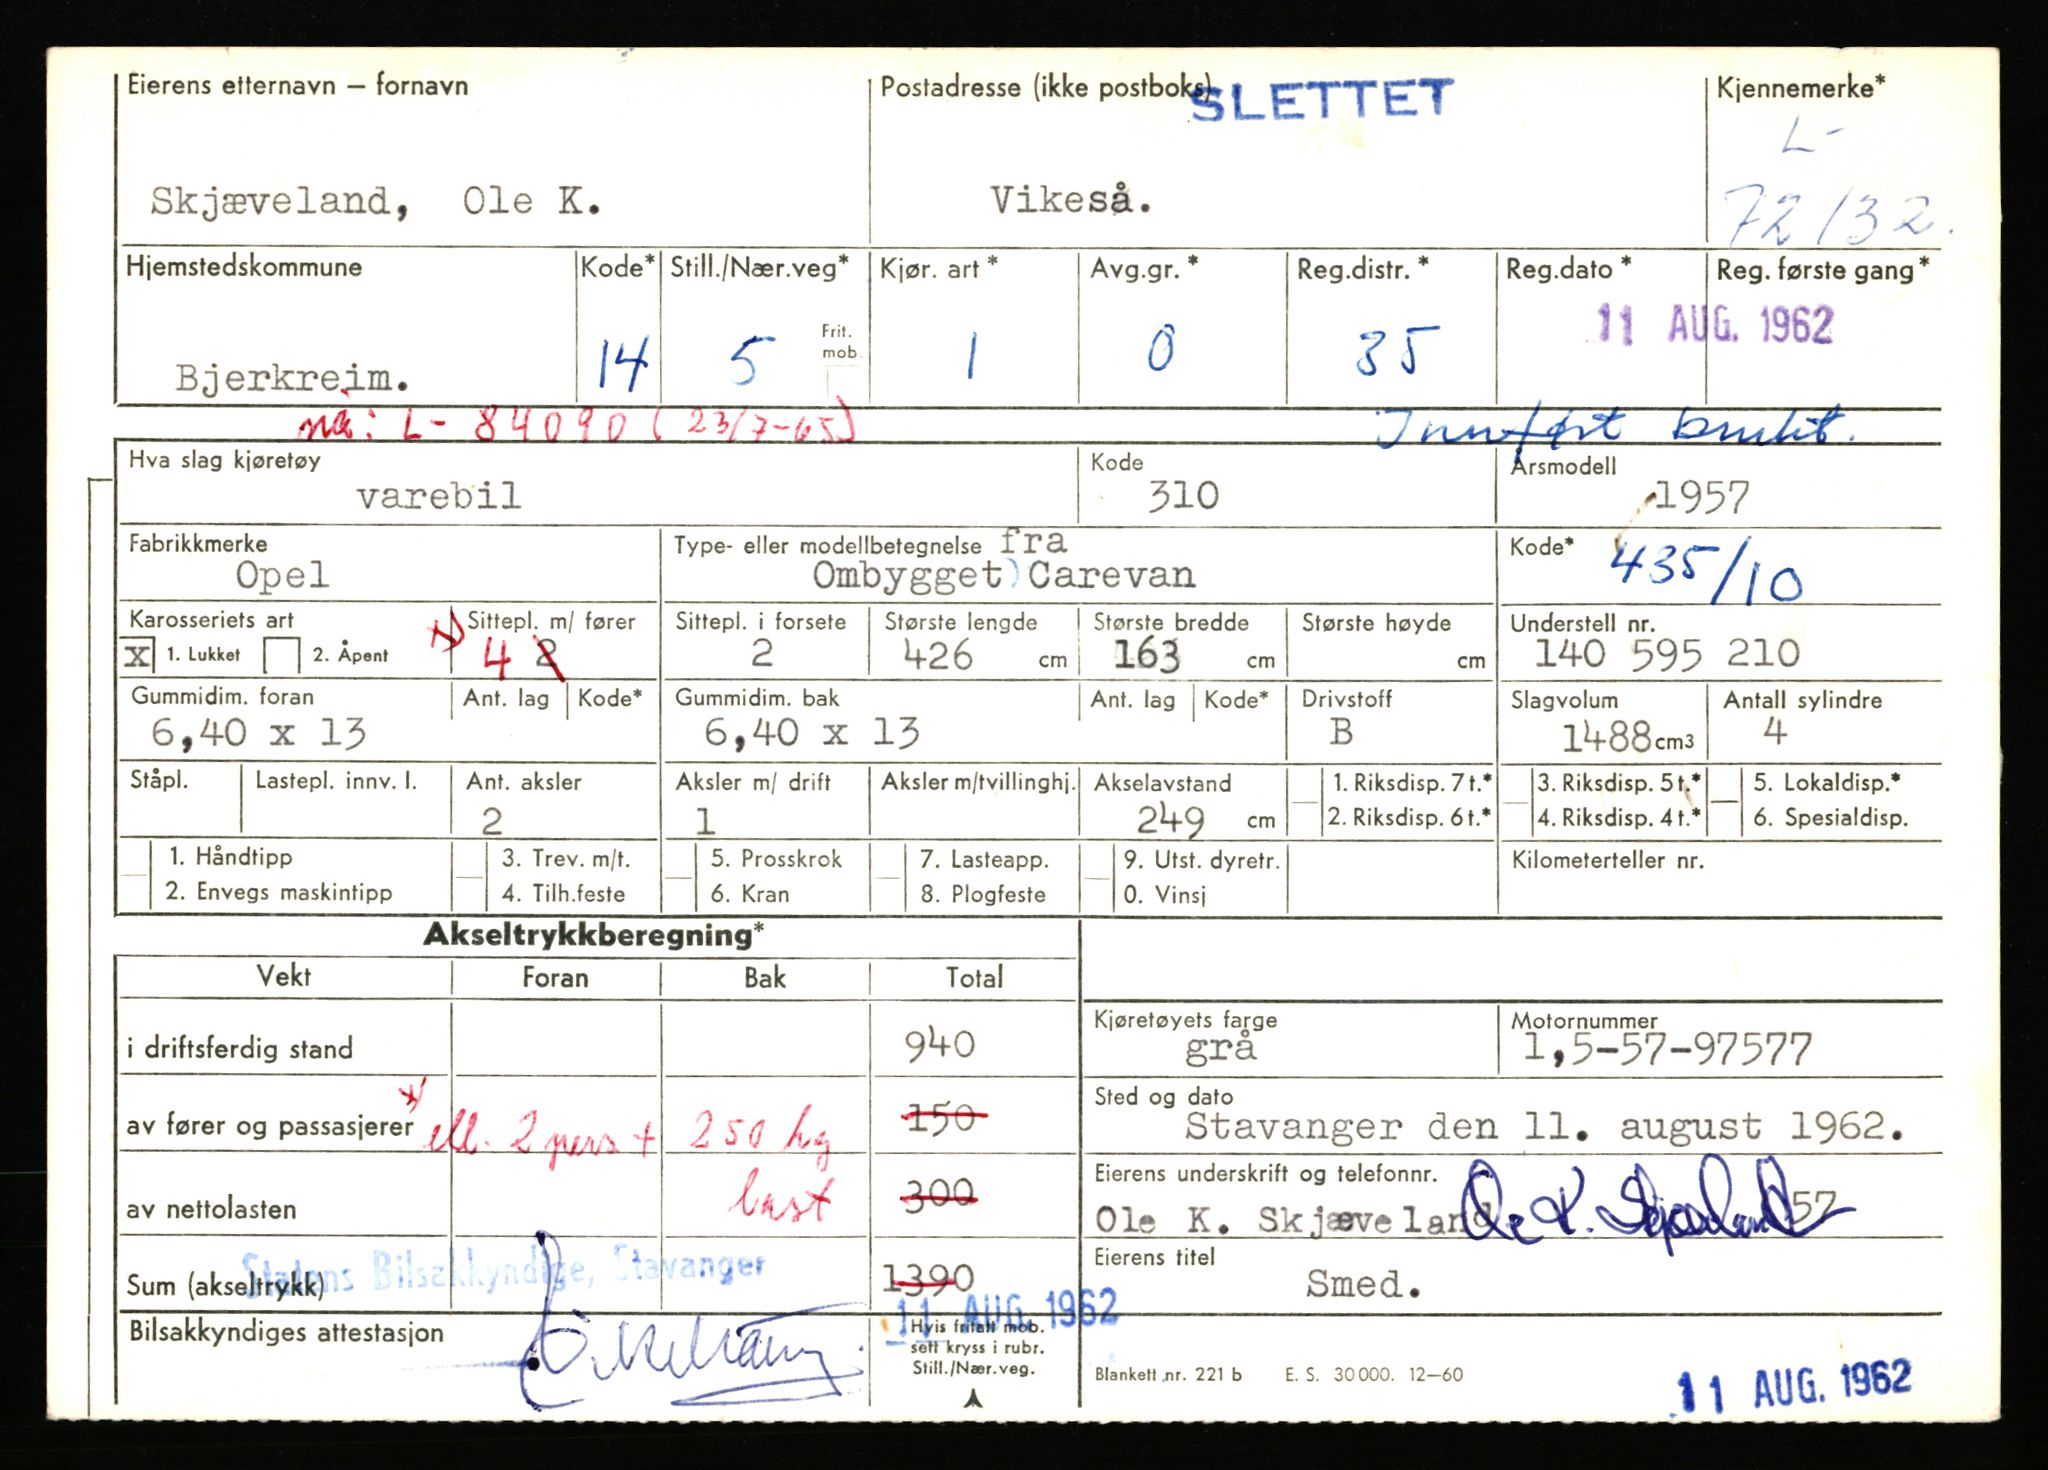 Eierens etternavn – fornavn
Postadresse (ikke postboks)
SLETTET
Kjennemerke*
L-
72132.
Skjæveland, Ole K.
Vikeså.
Hjemstedskommune
Kode*
Still./Nær.veg*
Kjør. art*
Avg.gr.*
Reg.distr.*
Reg.dato*
Reg. første gang*
Bjerkreim.
14
5
Frit.
mob.
1
0
35
11 AUG. 1962
nå: L- 84090 (23/7-65)
Innført brukt.
Hva slag kjøretøy
Kode
Årsmodell
varebil
310
1957
Fabrikkmerke
Type- eller modellbetegnelse
fra
Kode*
Opel
Ombygget) Carevan
435/10
Karosseriets art
x)
Sittepl. m/ fører
Sittepl. i forsete
Største lengde
Største bredde
Største høyde
Understell nr.
X 1. Lukket
2. Åpent
4 2
2
426 cm
163 cm
cm
140 595 210
Gummidim. foran
Ant. lag
Kode*
Gummidim. bak
Ant. lag
Kode*
Drivstoff
Slagvolum
Antall sylindre
6,40 x 13
6,40 x 13
B
1488 cm3
4
Ståpl.
Lastepl. innv. l.
Ant. aksler
Aksler m/ drift
Aksler m/tvillinghj.
Akselavstand
1. Riksdisp. 7 t.*
3. Riksdisp. 5 t.*
5. Lokaldisp.*
2
1
249 cm
2. Riksdisp. 6 t.*
4. Riksdisp. 4 t.*
6. Spesialdisp.
1. Håndtipp
3. Trev. m/t.
5. Prosskrok
7. Lasteapp.
9. Utst. dyretr.
Kilometerteller nr.
2. Envegs maskintipp
4. Tilh.feste
6. Kran
8. Plogfeste
0. Vinsj
Akseltrykkberegning*
Vekt
Foran
Bak
Total
i driftsferdig stand
940
Kjøretøyets farge
grå
Motornummer
1,5-57-97577
av fører og passasjerer
x)
ell. 2 pers +
250 kg
150
Sted og dato
Stavanger den 11. august 1962.
av nettolasten
last
300
Eierens underskrift og telefonnr.
Ole K. Skjæveland
Ole K. Skjæveland
57
Statens Bilsakkyndige, Stavanger
Sum (akseltrykk)
1390
Eierens titel
Smed.
11 AUG. 1962
Bilsakkyndiges attestasjon
Hvis fritatt mob.
sett kryss i rubr.
Still./Nær.veg.
Blankett nr. 221 b
E. S. 30 000. 12–60
11 AUG. 1962